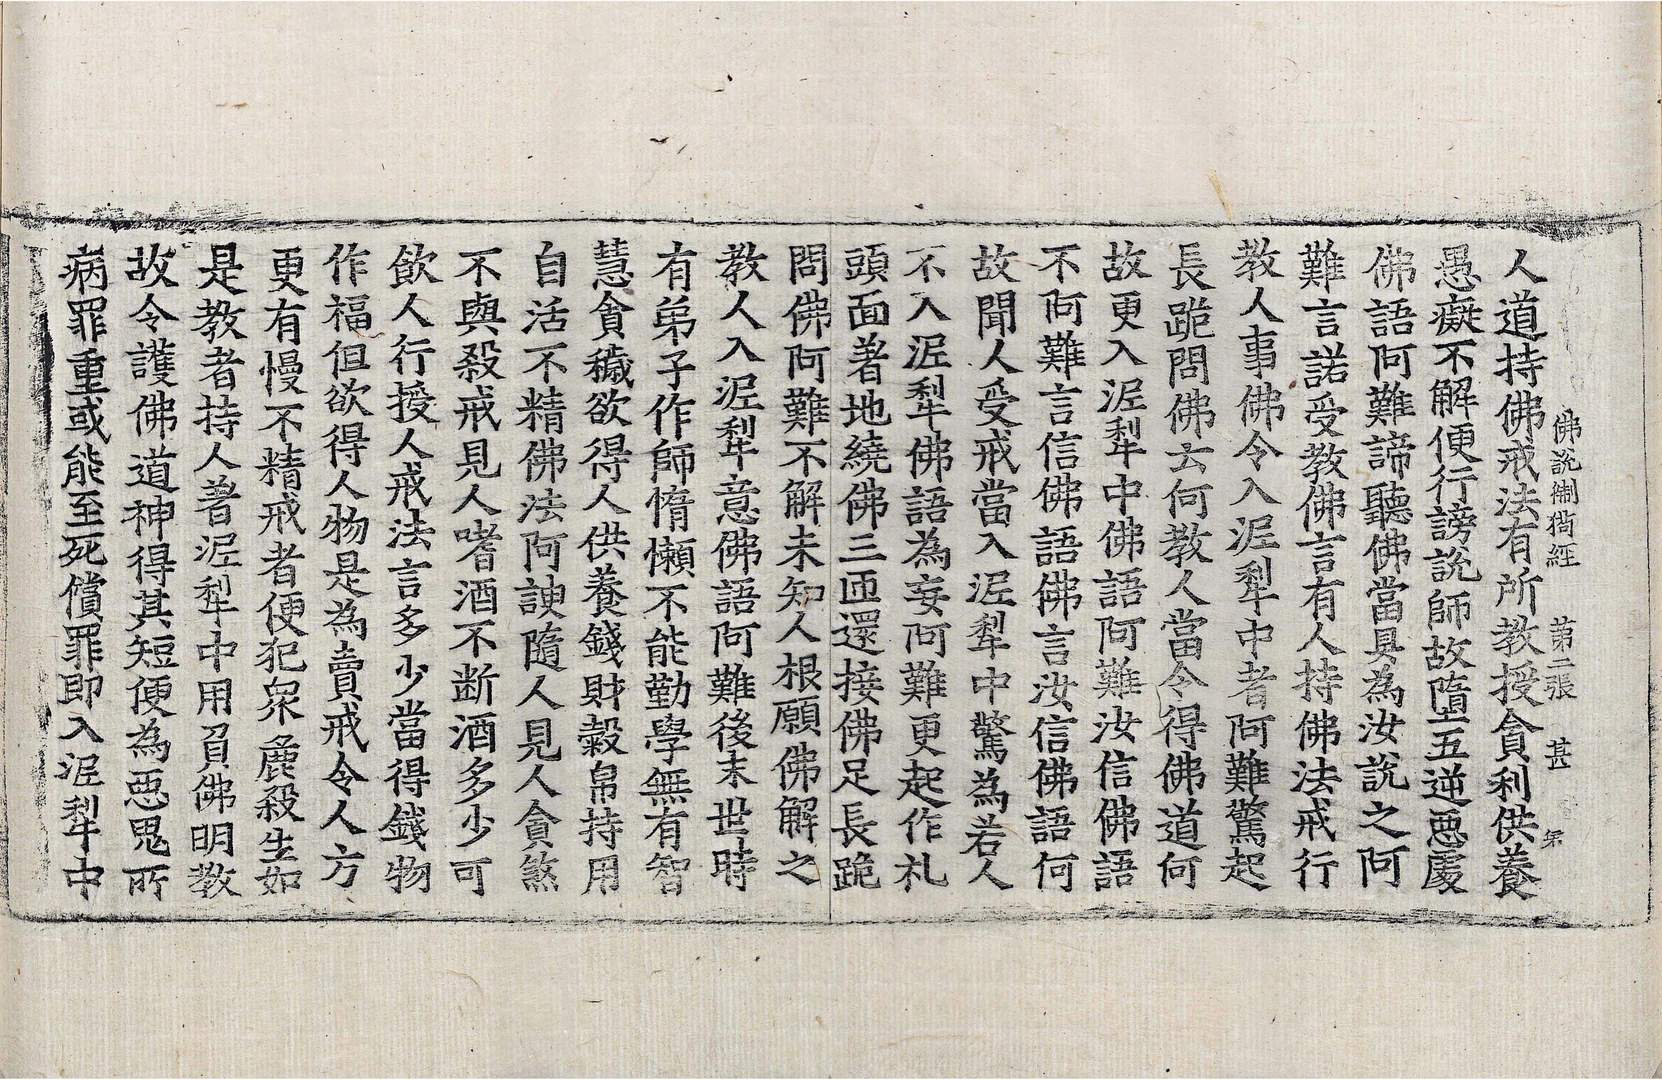 佛說制狗經 第二張 甚
人道持佛戒法有所教授貪利供養
愚癡不解便行謗說師故墮五逆惡處
佛語阿難諦聽佛當具為汝說之阿
難言諾受教佛言有人持佛法戒行
教人事佛令入泥犁中者阿難驚起
長跪問佛云何教人當令得佛道何
故更入泥犁中佛語阿難汝信佛語
不阿難言信佛語佛言汝信佛語何
故聞人受戒當入泥犁中驚為若人
不入泥犁佛語為妄阿難更起作礼
頭面著地繞佛三匝還接佛足長跪
問佛阿難不解未知人根願佛解之
教人入泥犁意佛語阿難後末世時
有弟子作師惰懶不能勤學無有智
慧貪穢欲得人供養錢財穀帛持用
自活不精佛法阿諛隨人見人貪煞
不與殺戒見人嗜酒不断酒多少可
飲人行授人戒法言多少當得錢物
作福但欲得人物是為賣戒令人方
更有慢不精戒者便犯衆麁殺生如
是教者持人著泥犁中用負佛明教
故令護佛道神得其短便為惡鬼所
病罪重或能至死償罪即入泥犁中